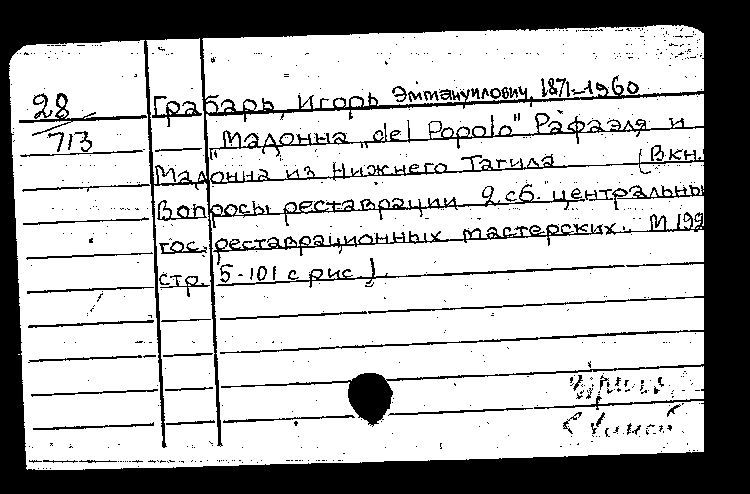 28
713
Грабарь, Игорь Эммануилович, 1871-1960
"Мадонна „del Popolo" Рафаэля и
Мадонна из Нижнего Тагила (В кн.
Вопросы реставрации 2 сб. центральны
гос. реставрационных мастерских. М. 192
стр. 5-101 с рис.)